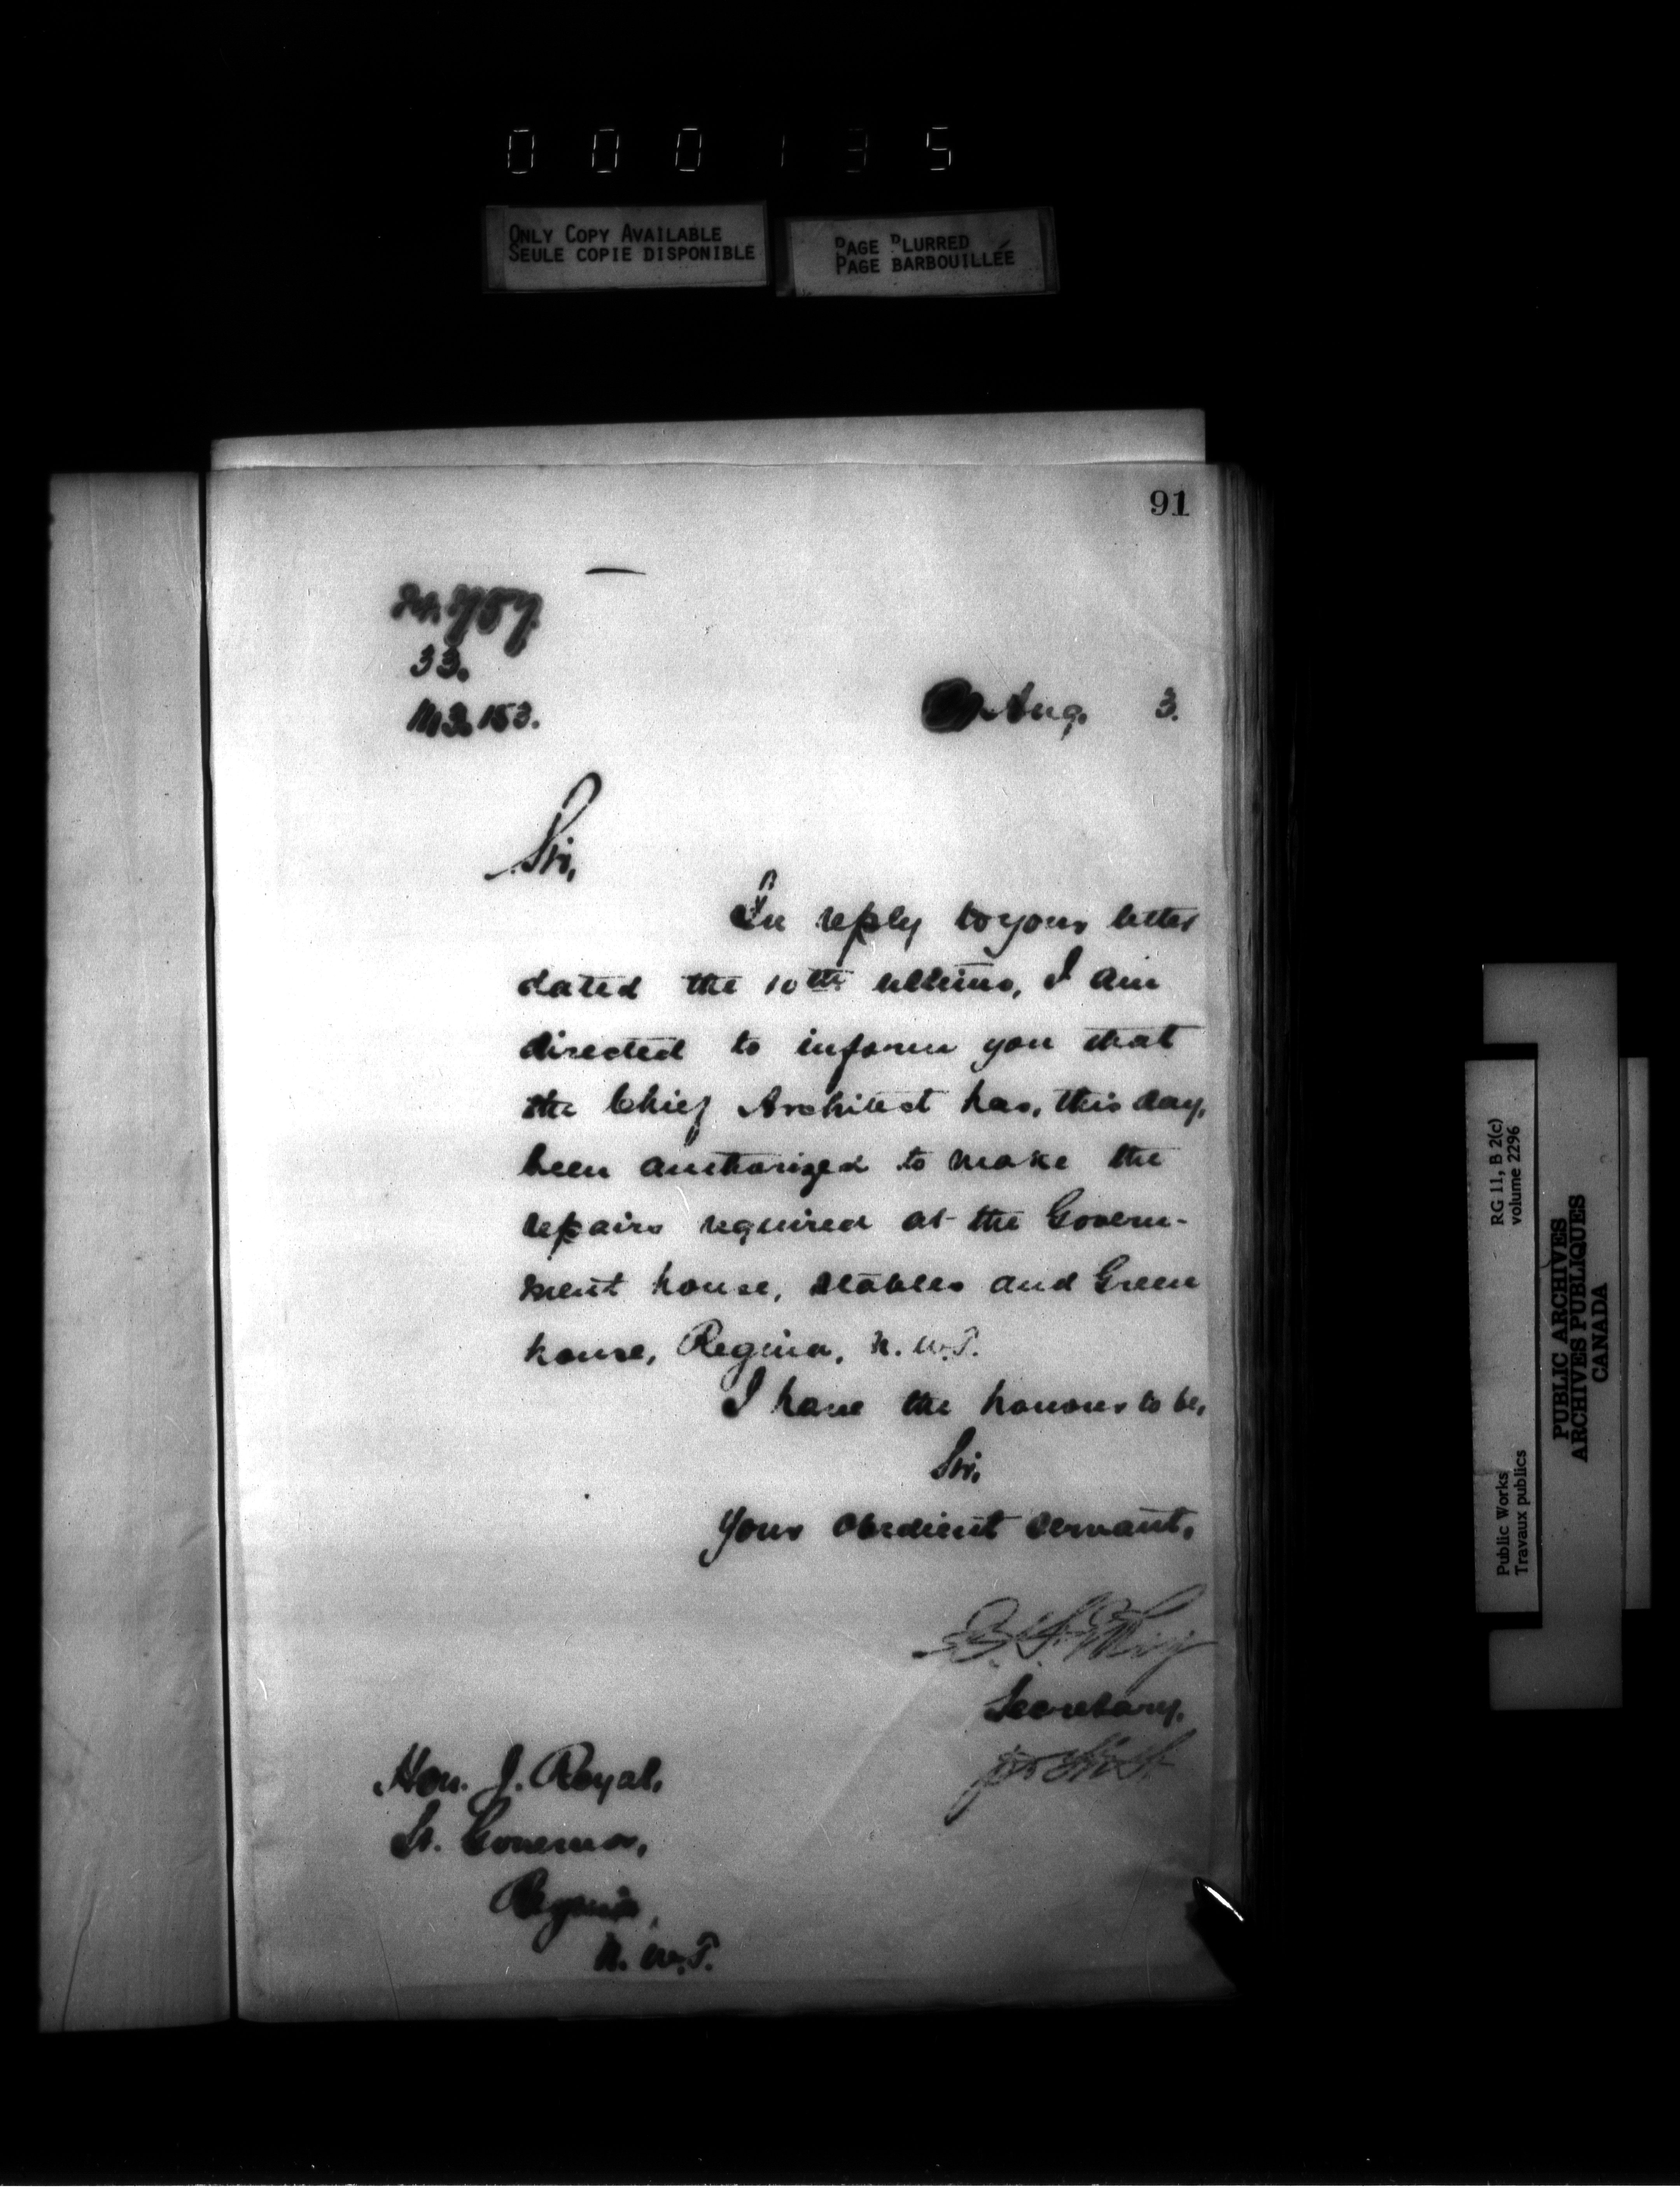 000135
ONLY COPY AVAILABLE
SEULE COPIE DISPONIBLE
PAGE BLURRED
PAGE BARBOUILLÉE
91
33.
153.
Aug. 3.
Sir,
In reply to your letter
dated the 10th ultimo, I am
directed to inform you that
the Chief Architect has, this day,
been authorized to make the
repairs required at the Govern-
ment house, stables and Green
house, Regina, N. W. T.
I have the honour to be,
Sir,
Your obedient servant,
Secretary.
Hon. J. Royal,
Lt. Governor,
Regina,
N. W. T.
RG 11, B 2(c)
volume 2296
Public Works
Travaux publics
PUBLIC ARCHIVES
ARCHIVES PUBLIQUES
CANADA